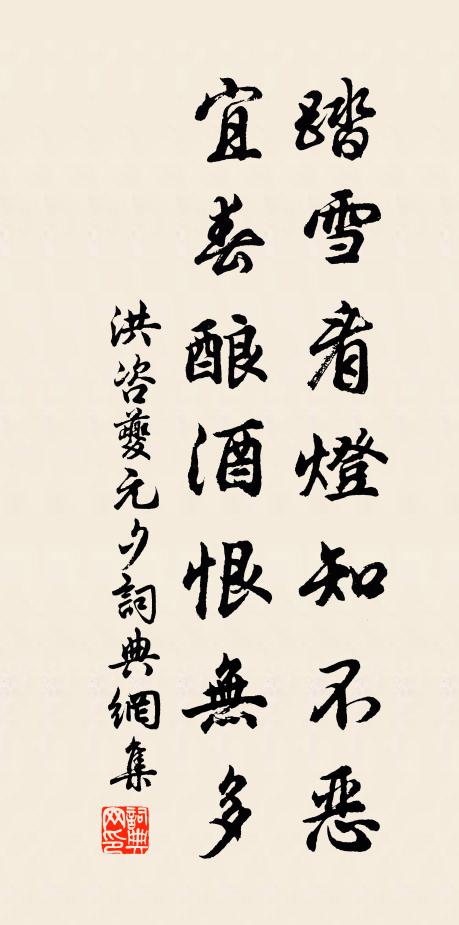 踏雪看燈知不惡
宜春釀酒恨無多
洪咨夔元夕詞典網集
詞典網印